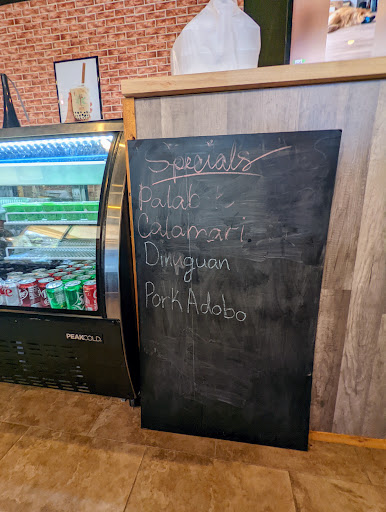 Specials
Palab
Calamari
Dinuguan
Pork Adobo
PEAKCOLD